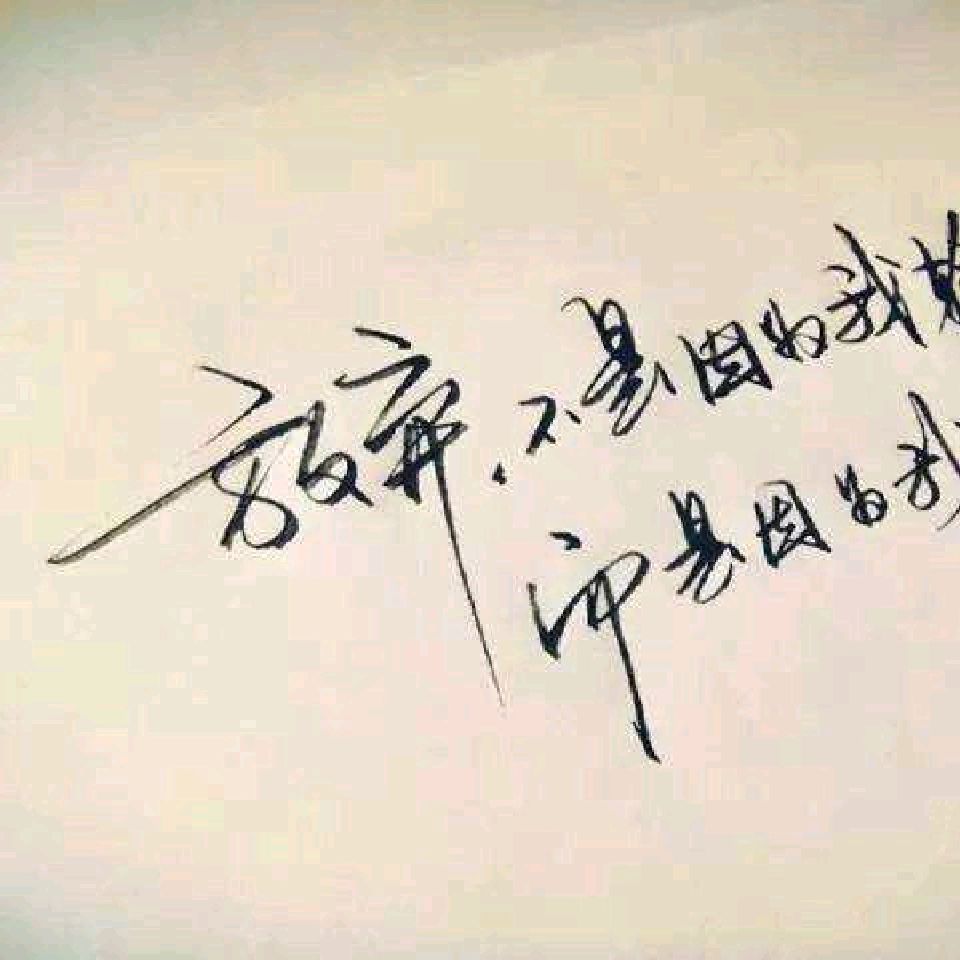 放弃,不是因为我
而是因为我